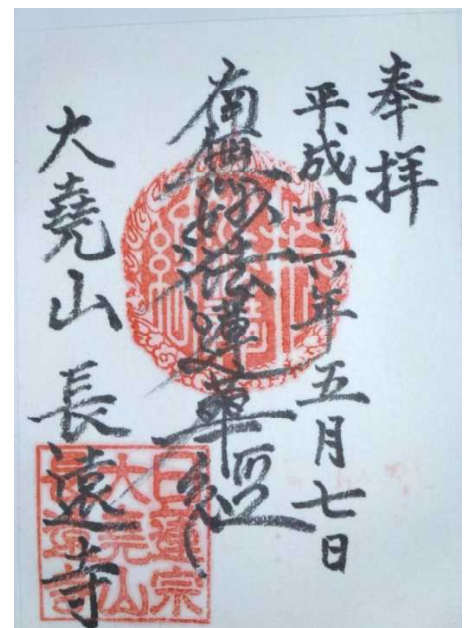 奉拝
平成廿六年五月七日
南無妙法蓮華経
大堯山 長遠寺
日蓮宗
大堯山
長遠寺